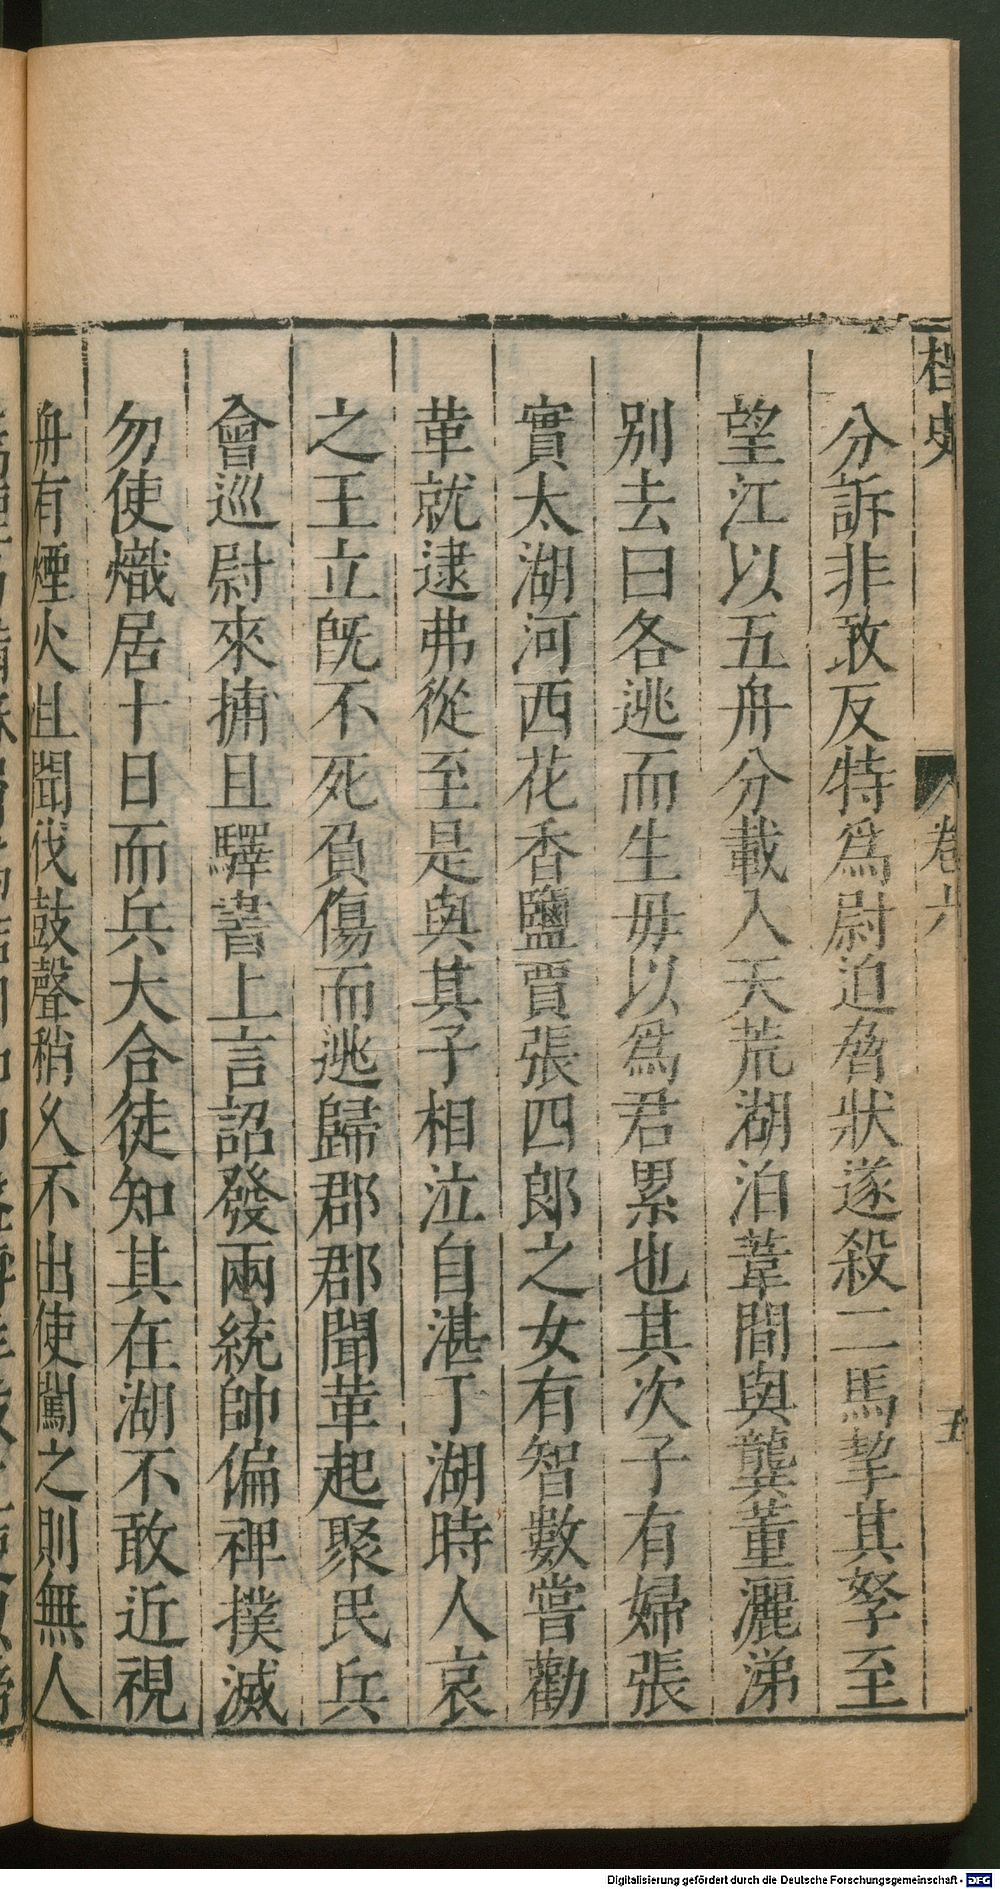 桯史
卷六
五
分訴非敢反特爲尉迫脅狀遂殺二馬挈其孥至
望江以五舟分載入天荒湖泊葦間與龔董灑涕
別去曰各逃而生毋以爲君累也其次子有婦張
實太湖河西花香鹽賈張四郎之女有智數嘗勸
革就逮弗從至是與其子相泣自湛丁湖時人哀
之王立旣不死負傷而逃歸郡郡聞革起聚民兵
會巡尉來捕且驛書上言詔發兩統帥偏裨撲滅
勿使熾居十日而兵大合徒知其在湖不敢近視
舟有煙火且聞伐鼓聲稍久不出使闖之則無人
Digitalisierung gefördert durch die Deutsche Forschungsgemeinschaft - DFG